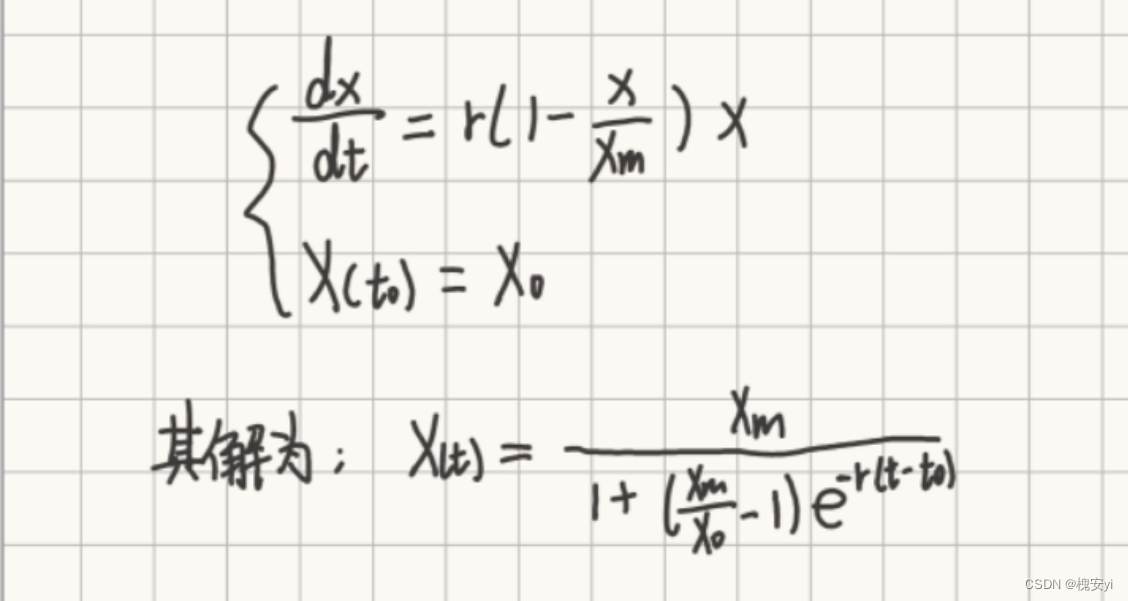 dx/dt = r(1 - x/xm) x
x(t0) = x0
其解为: x(t) = xm / (1 + (xm/x0 - 1) e^-r(t-t0))
CSDN @槐安yi